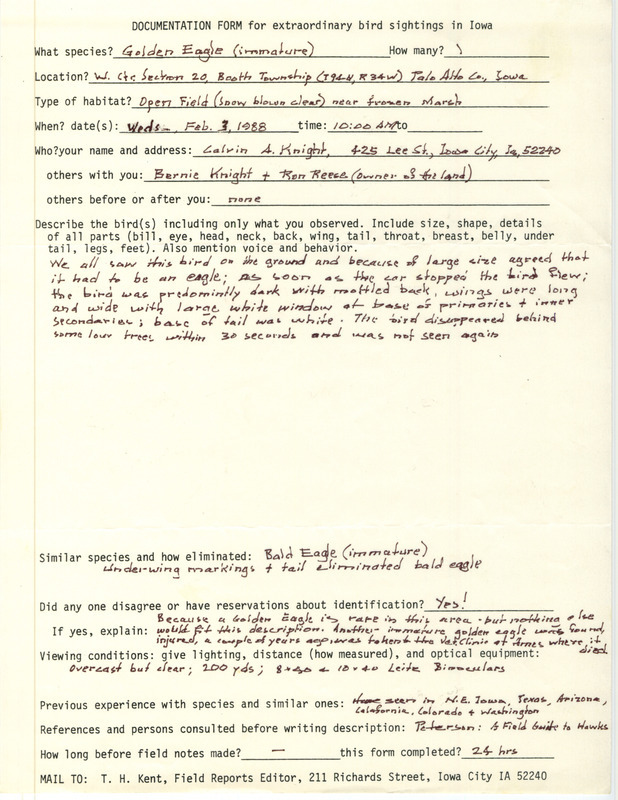 DOCUMENTATION FORM for extraordinary bird sightings in Iowa
What species? Golden Eagle (immature) How many? 1
Location? W. Ctr. Section 20, Booth Township (T94N, R34W) Palo Alto Co., Iowa
Type of habitat? Open Field (snow blown clear) near frozen Marsh
When? date(s): Weds., Feb. 3, 1988 time: 10:00 AM to
Who? your name and address: Calvin A. Knight, 425 Lee St., Iowa City, Ia, 52240
others with you: Bernie Knight + Ron Reese (owner of the land)
others before or after you: none
Describe the bird(s) including only what you observed. Include size, shape, details
of all parts (bill, eye, head, neck, back, wing, tail, throat, breast, belly, under
tail, legs, feet). Also mention voice and behavior.
We all saw this bird on the ground and because of large size agreed that
it had to be an eagle; as soon as the car stopped the bird flew;
the bird was predomintly dark with mottled back, wings were long
and wide with large white window at base of primaries + inner
secondaries; base of tail was white. The bird disappeared behind
some low trees within 30 seconds and was not seen again
Similar species and how eliminated: Bald Eagle (immature)
Under-wing markings + tail eliminated bald eagle
Did any one disagree or have reservations about identification? Yes!
Because a Golden Eagle is rare in this area - but nothing else
If yes, explain: would fit this description. Another immature golden eagle was found,
injured, a couple of years ago, was taken to the Vet. Clinic at Ames where it
died
Viewing conditions: give lighting, distance (how measured), and optical equipment:
Overcast but clear; 200 yds; 10x40 Leitz Binoculars
Previous experience with species and similar ones: Have seen in N.E. Iowa, Texas, Arizona,
California, Colorado + Washington
References and persons consulted before writing description: Peterson: A Field Guide to Hawks
How long before field notes made? — this form completed? 24 hrs
MAIL TO: T. H. Kent, Field Reports Editor, 211 Richards Street, Iowa City IA 52240